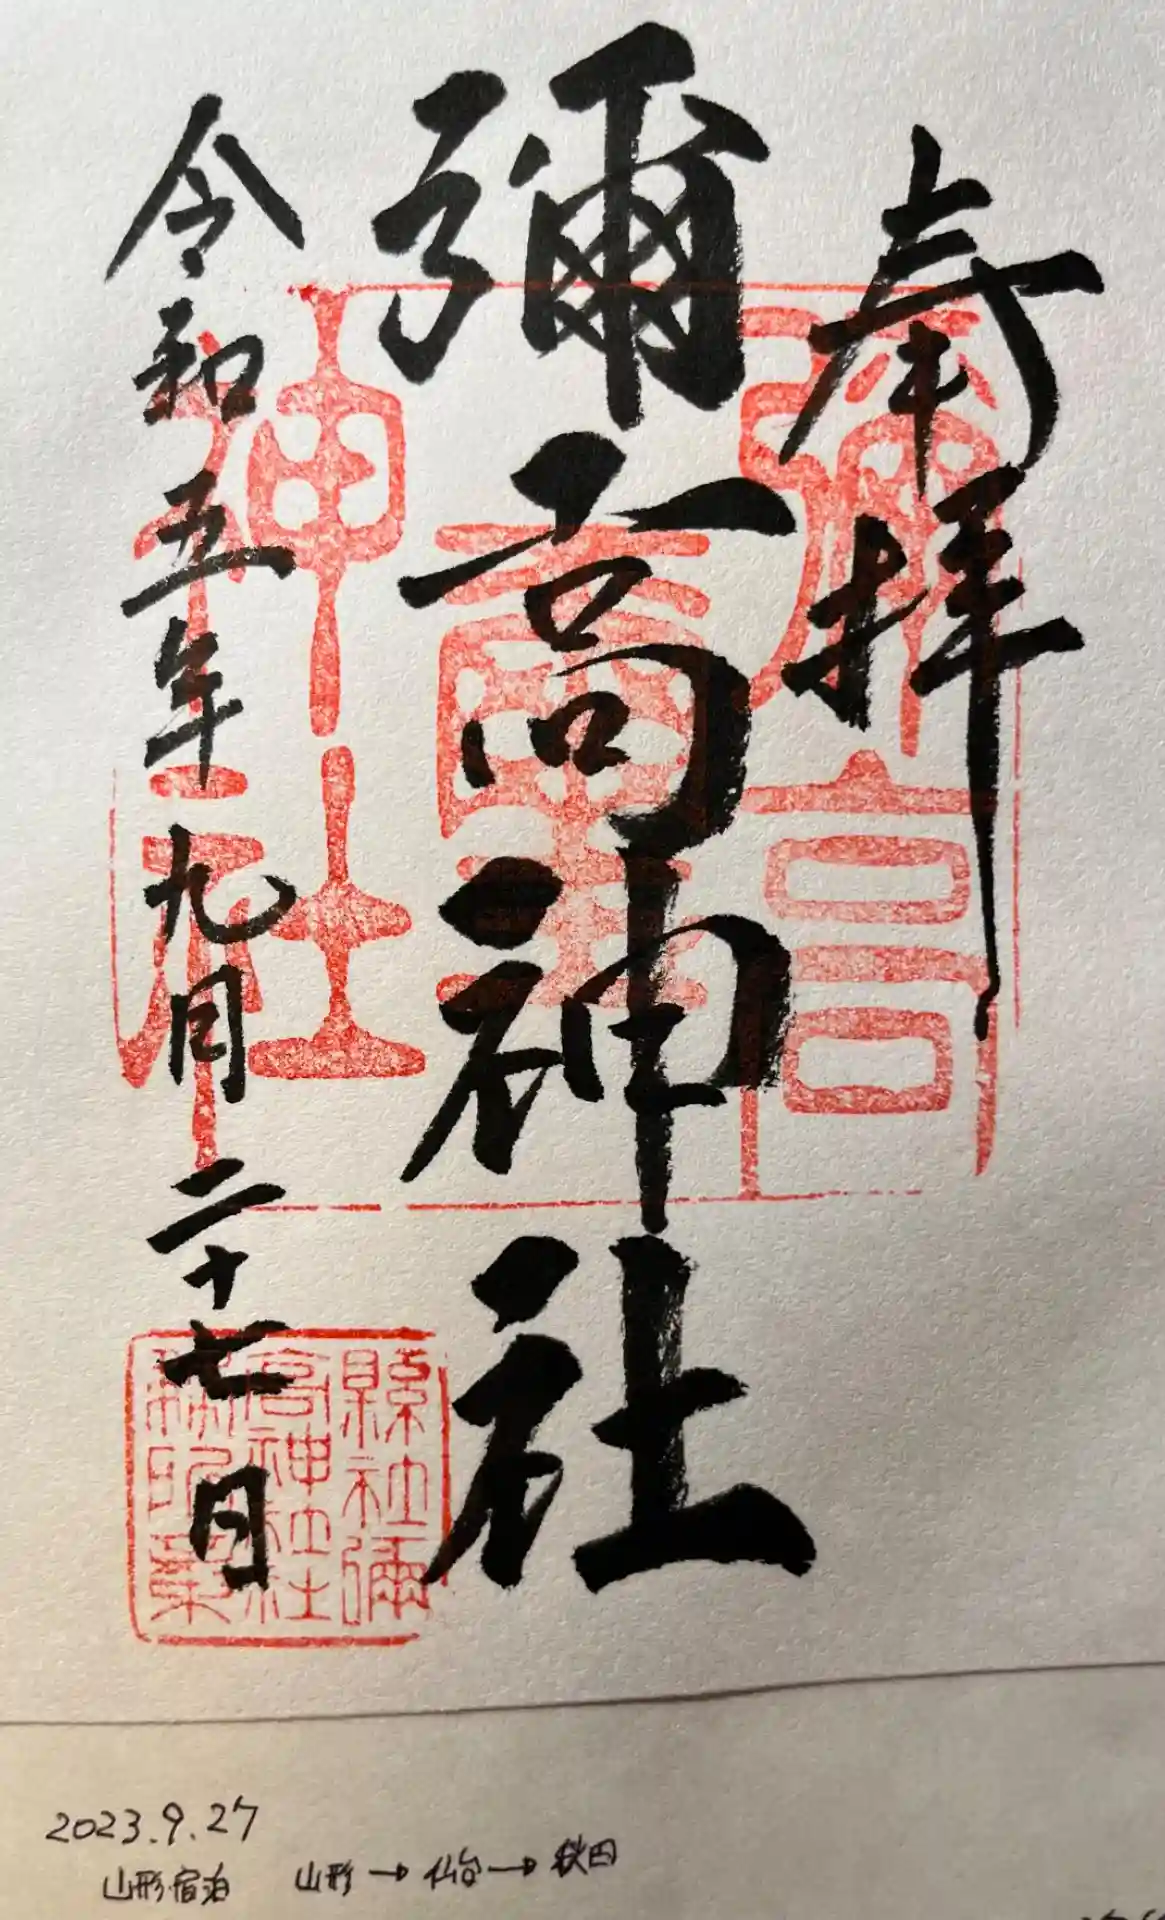 奉拝
彌高神社
令和五年九月二十七日
彌高
神社
縣社彌
高神社社
務所章
2023.9.27
山形宿泊 山形→仙台→秋田